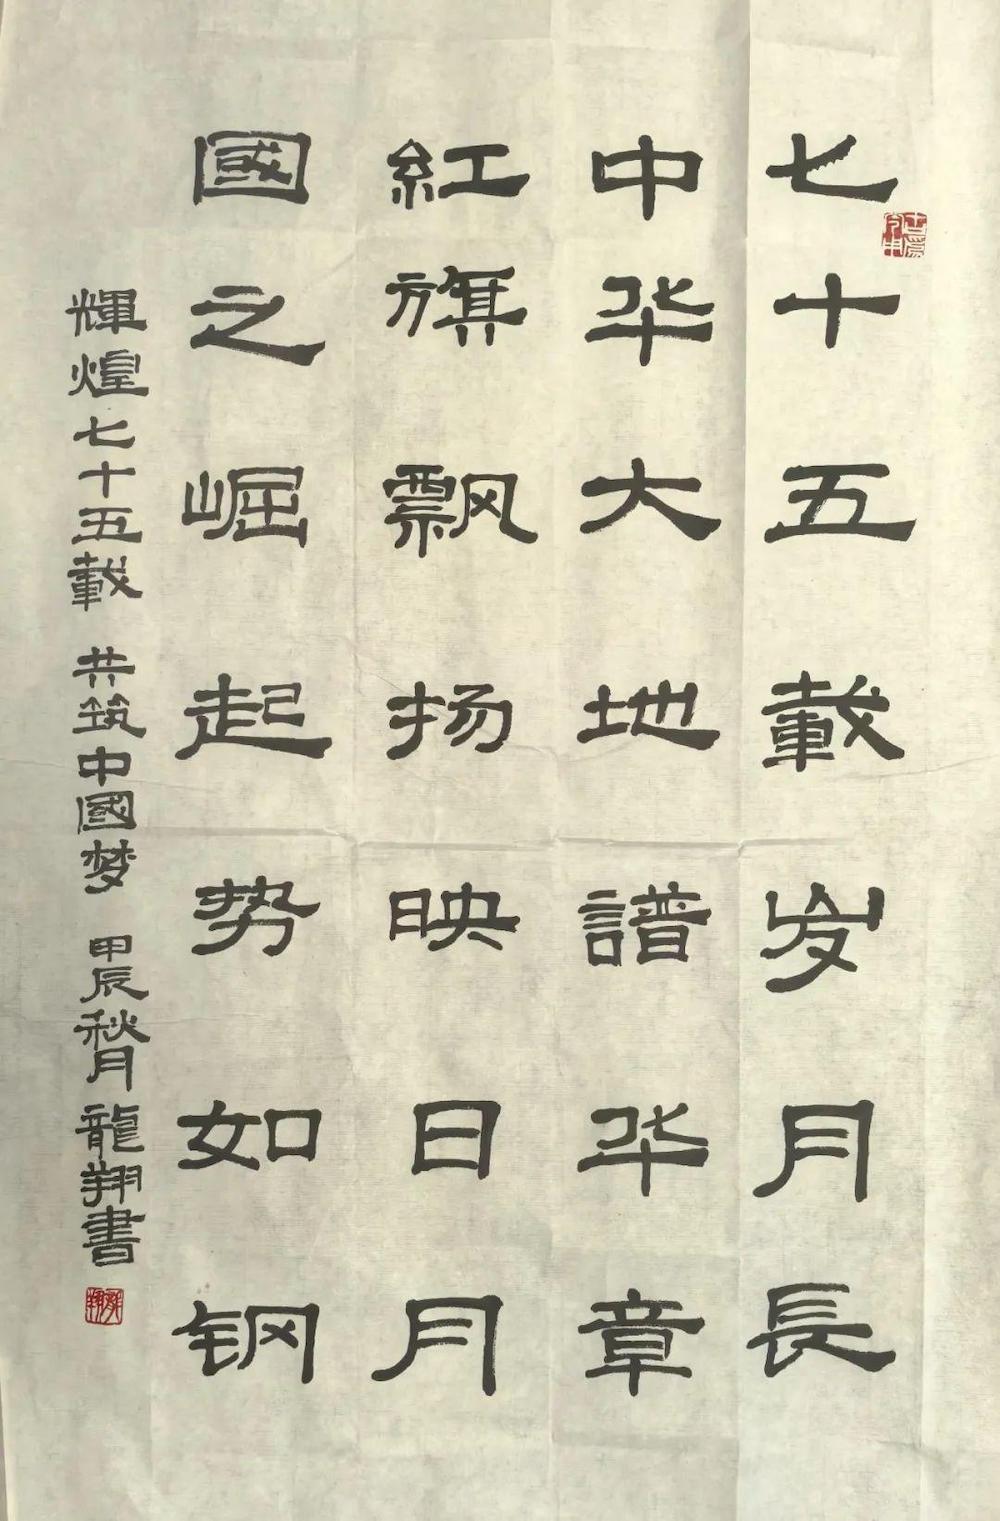 七十五載岁月長
中华大地譜华章
紅旗飘扬映日月
國之崛起势如钢
輝煌七十五載 共筑中國梦 甲辰秋月龍翔書